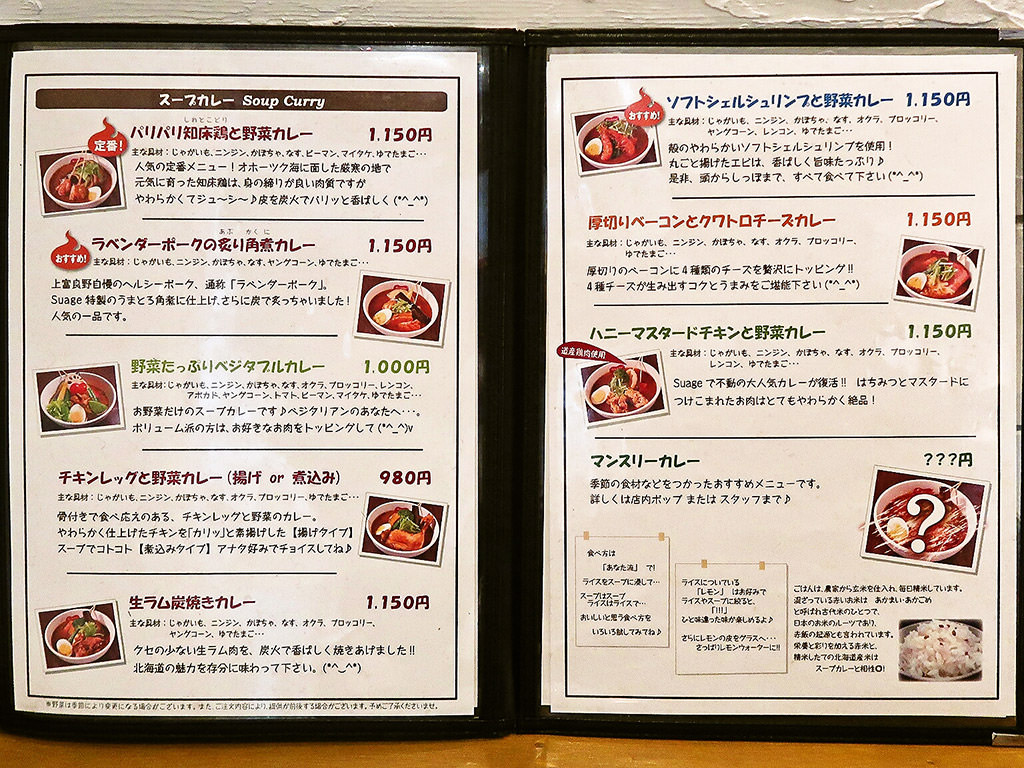 スープカレー Soup Curry
定番!
しれとこどり
パリパリ知床鶏と野菜カレー 1.150円
主な具材:じゃがいも、ニンジン、かぼちゃ、なす、ピーマン、マイタケ、ゆでたまご…
人気の定番メニュー!オホーツク海に面した厳寒の地で
元気に育った知床鶏は、身の締りが良い肉質ですが
やわらかくてジュ〜シ〜♪皮を炭火でパリッと香ばしく(*^_^*)
おすすめ!
あぶ かくに
ラベンダーポークの炙り角煮カレー 1.150円
主な具材:じゃがいも、ニンジン、かぼちゃ、なす、ヤングコーン、ゆでたまご…
上富良野自慢のヘルシーポーク、通称「ラベンダーポーク」。
Suage 特製のうまとろ角煮に仕上げ、さらに炭で炙っちゃいました!
人気の一品です。
野菜たっぷりベジタブルカレー 1.000円
主な具材:じゃがいも、ニンジン、かぼちゃ、なす、オクラ、ブロッコリー、レンコン、
アボカド、ヤングコーン、トマト、ピーマン、マイタケ、ゆでたまご…
お野菜だけのスープカレーです♪ベジタリアンのあなたへ…。
ボリューム派の方は、お好きなお肉をトッピングして(*^_^)v
チキンレッグと野菜カレー(揚げ or 煮込み) 980円
主な具材:じゃがいも、ニンジン、かぼちゃ、なす、オクラ、ブロッコリー、ゆでたまご…
骨付きで食べ応えのある、チキンレッグと野菜のカレー。
やわらかく仕上げたチキンを「カリッ」と素揚げした【揚げタイプ】
スープでコトコト【煮込みタイプ】アナタ好みでチョイスしてね♪
生ラム炭焼きカレー 1.150円
主な具材:じゃがいも、ニンジン、かぼちゃ、なす、オクラ、ブロッコリー、
ヤングコーン、ゆでたまご…
クセの少ない生ラム肉を、炭火で香ばしく焼きあげました!!
北海道の魅力を存分に味わって下さい。(*^_^*)
※野菜は季節により変更になる場合がございます。また、ご注文内容により、提供が前後する場合がございます。予めご了承くださいませ。
おすすめ!
ソフトシェルシュリンプと野菜カレー 1.150円
主な具材:じゃがいも、ニンジン、かぼちゃ、なす、オクラ、ブロッコリー、
ヤングコーン、レンコン、ゆでたまご…
殻のやわらかいソフトシェルシュリンプを使用!
丸ごと揚げたエビは、香ばしく旨味たっぷり♪
是非、頭からしっぽまで、すべて食べて下さい(*^_^*)
厚切りベーコンとクワトロチーズカレー 1.150円
主な具材:じゃがいも、ニンジン、かぼちゃ、なす、オクラ、ブロッコリー、
ゆでたまご…
厚切りのベーコンに4種類のチーズを贅沢にトッピング!!
4種チーズが生み出すコクとうまみをご堪能下さい(*^_^*)
ハニーマスタードチキンと野菜カレー 1.150円
道産鶏肉使用
主な具材:じゃがいも、ニンジン、かぼちゃ、なす、オクラ、ブロッコリー、
レンコン、ゆでたまご…
Suage で不動の大人気カレーが復活!! はちみつとマスタードに
つけこまれたお肉はとてもやわらかく絶品!
マンスリーカレー ???円
季節の食材などをつかったおすすめメニューです。
詳しくは店内ポップ または スタッフまで♪
?
食べ方は
「あなた流」で!
ライスをスープに浸して…
スープはスープ
ライスはライスで…
おいしいと思う食べ方を
いろいろ試してみてね♪
ライスについている
「レモン」 はお好みで
ライスやスープに絞ると、
「!!!」
ひと味違った味が楽しめるよ♪
さらにレモンの皮をグラスへ…
さっぱりレモンウォーターに!!
ごはんは、農家から玄米を仕入れ、毎日精米しています。
混ざっている赤いお米は あかまい・あかごめ
と呼ばれ古代米のひとつで、
日本のお米のルーツであり、
赤飯の起源とも言われています。
栄養と彩りを加える赤米と、
精米したての北海道産米は
スープカレーと相性◎!